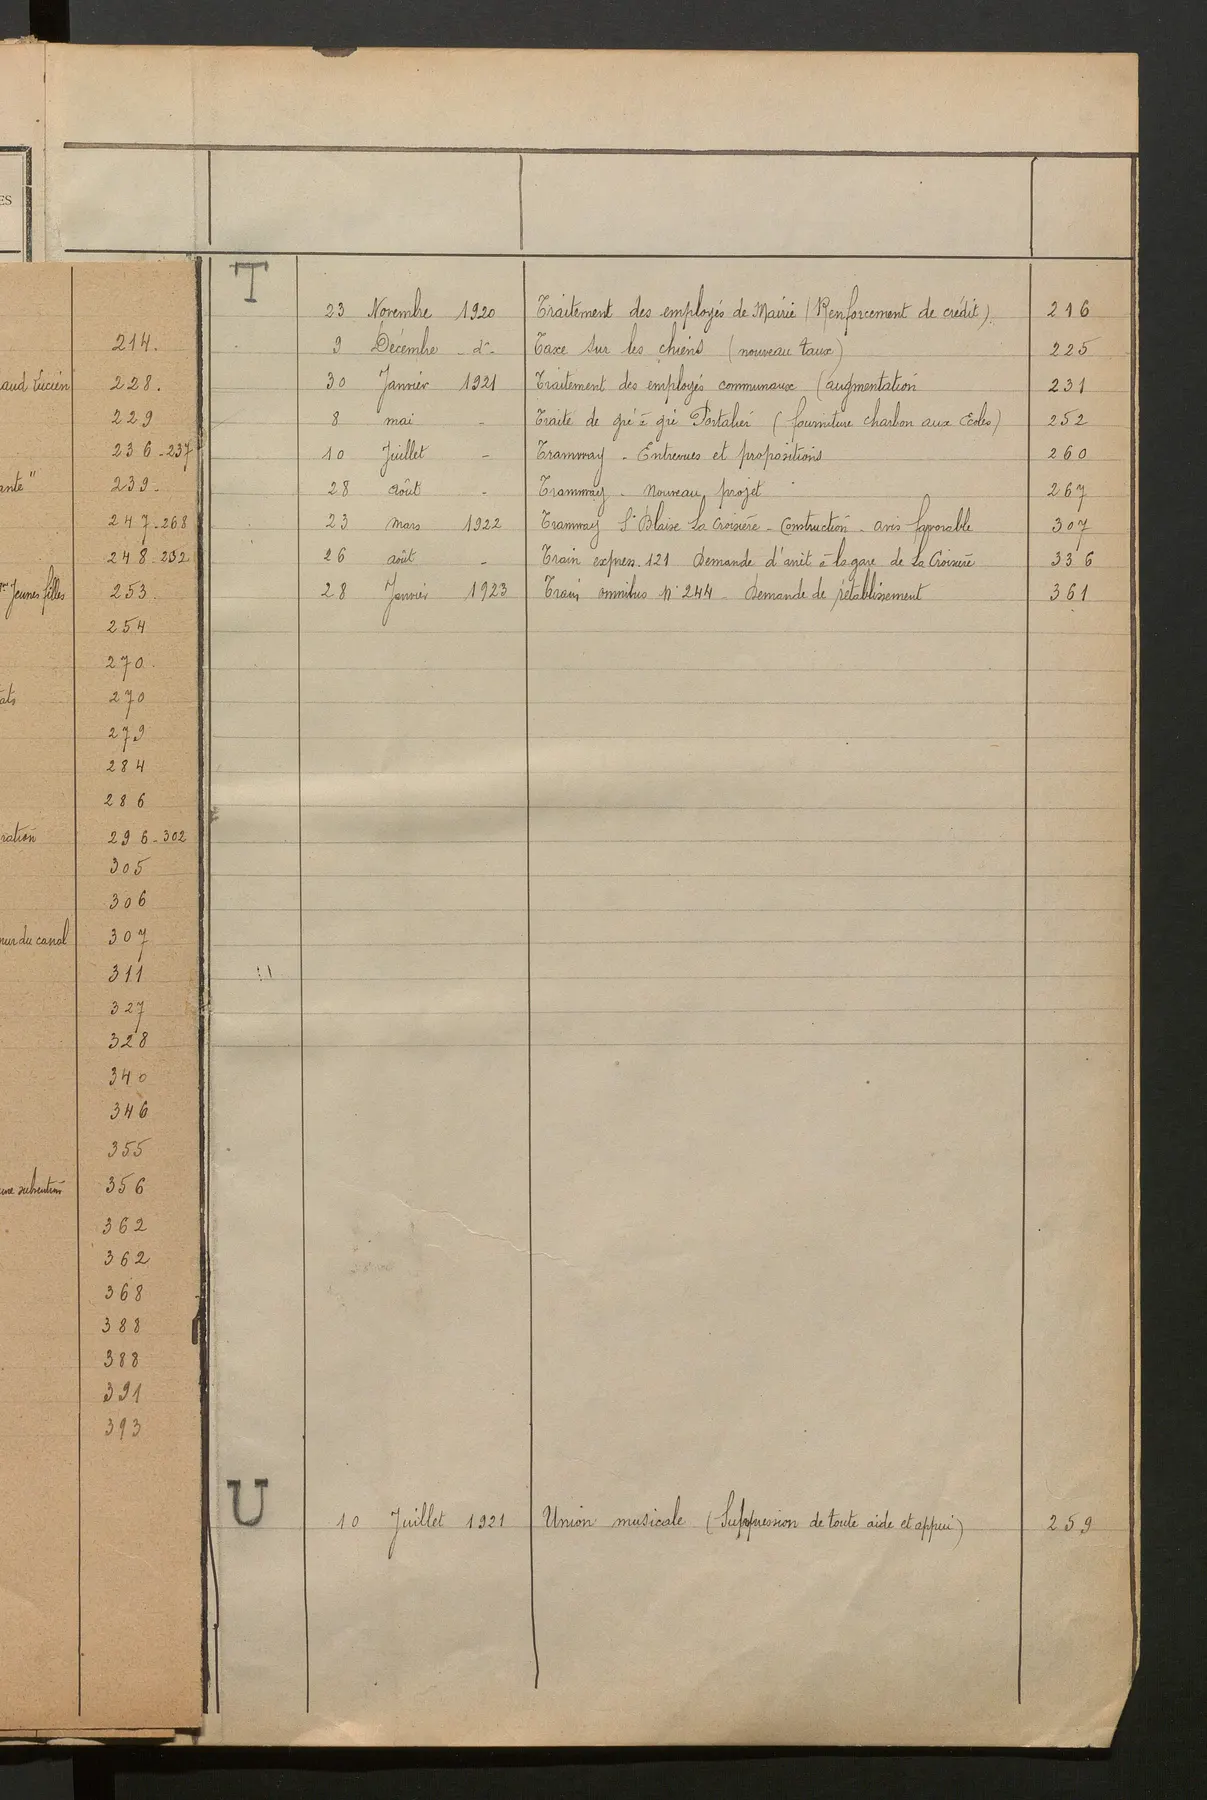 ES
214.
aud Lucien 228.
229
236-237
ante" 239-
247-268
248-292
Jeunes filles 253.
254
270.
ats 270
279
284
286
ration 296-302
305
306
mur du canal 307
311
327
328
340
346
355
une subvention 356
362
362
368
388
388
391
393
T
23 Novembre 1920 Traitement des employés de Mairie (Renforcement de crédit). 216
9 Décembre - d°- Taxe sur les chiens (nouveau taux) 225
30 Janvier 1921 Traitement des employés communaux (augmentation 231
8 mai - Traité de gré à gré Portalier (fourniture charbon aux Ecoles) 252
10 Juillet - Tramway - Entrevues et propositions 260
28 août - Tramway - nouveau projet 267
23 mars 1922 Tramway St Blaise La Croisière - Construction - avis favorable 307
26 août - Train express. 121 Demande d'arrêt à la gare de La Croisière 336
28 Janvier 1923 Train omnibus N° 244 - Demande de rétablissement 361
U
10 Juillet 1921 Union musicale (Suppression de toute aide et appui) 259